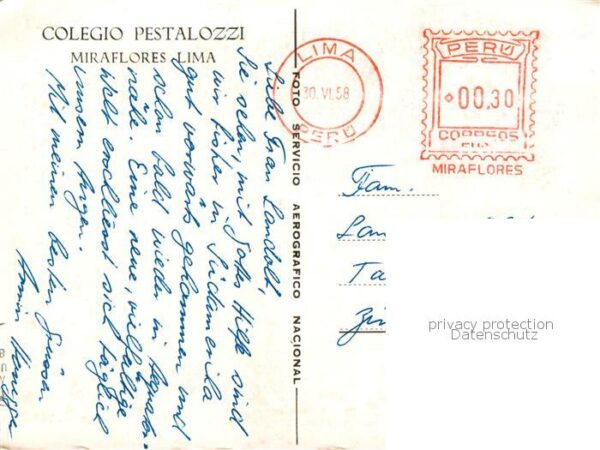 COLEGIO PESTALOZZI
MIRAFLORES - LIMA
Liebe Frau Landolt,
Sie sehen, mit Gottes Hilfe sind
wir bisher in Südamerika
gut vorwärts gekommen und
schon bald wieder in Aequator-
nähe. Eine neue, vielfältige
Welt erschliesst sich täglich
unsern Augen.
Mit meinen besten Grüssen
Armin
FOTO SERVICIO AEROGRAFICO NACIONAL
LIMA
30. VI. 58
PERÚ
PERÚ
00,30
CORREOS
MIRAFLORES
Fam.
Lan
Ta
Zü
privacy protection
Datenschutz